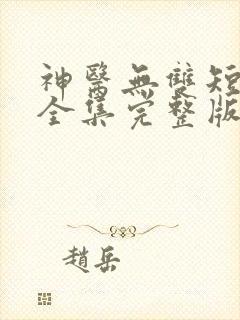 神醫無雙短
全集完整版
趙岳